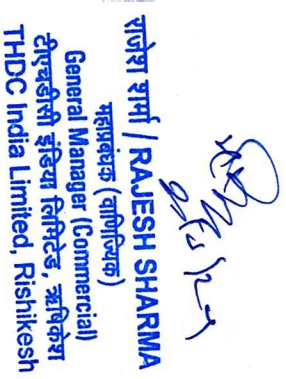 राजेश शर्मा / RAJESH SHARMA
महाप्रबंधक (वाणिज्यिक)
General Manager (Commercial)
टीएचडीसी इंडिया लिमिटेड, ऋषिकेश
THDC India Limited, Rishikesh